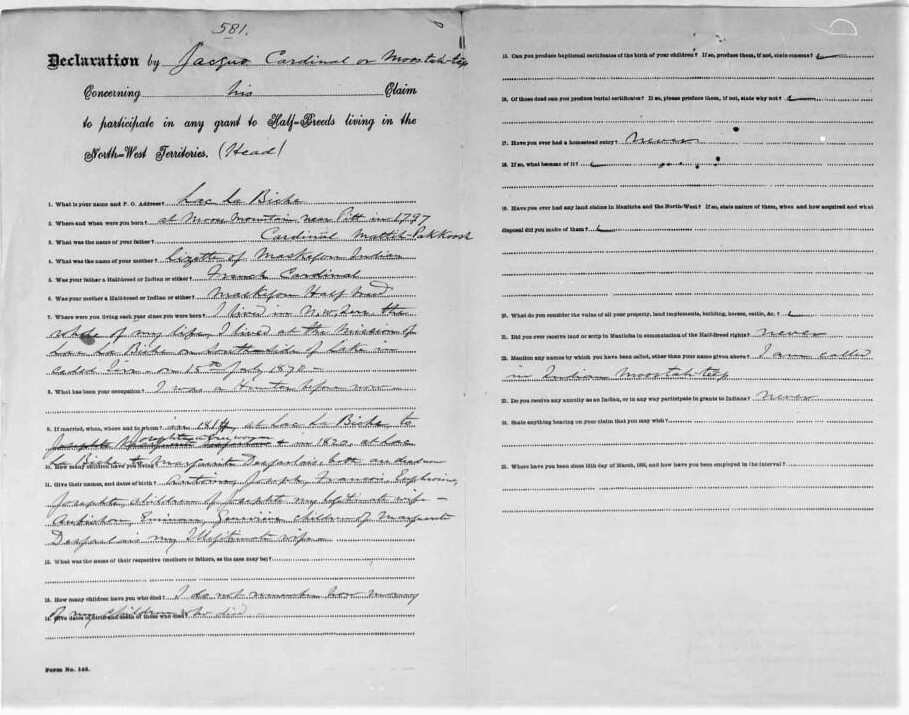 581.
Declaration by Jacques Cardinal or Moostah-teep
Concerning his Claim
to participate in any grant to Half-Breeds living in the
North-West Territories. (Head)
1. What is your name and P. O. Address? Lac La Biche
2. Where and when were you born? at Moose Mountain near Pitt in 1797
3. What was the name of your father? Cardinal Mattih-Pakkoosh
4. What was the name of your mother? Lizette of Maskegon Indian
5. Was your father a Half-breed or Indian or either? French Cardinal
6. Was your mother a Half-breed or Indian or either? Maskegon Half breed
7. Where were you living each year since you were born? I lived in N.W. Terr. the
whole of my life, I lived at the Mission of
Lac La Biche on South side of Lake in
ceded Terr. on 15th July 1870 -
8. What has been your occupation? I was a Hunter before now
9. If married, when, where and to whom? in 1817, at Lac La Biche, to
Josephte in 1820 at Lac
La Biche to Marguerite Desjarlais both are dead now
10. How many children have you living?
11. Give their names, and dates of birth? Antoine, Joseph, Francois, Euphrosine,
Josephte, children of Josephte my legitimate wife -
children of Marguerite
Desjarlais my Illegitimate wife
12. What was the name of their respective (mothers or fathers, as the case may be)?
13. How many children have you who died? I do not remember how many
of my children who died -
14. Give dates of birth and death of those who died?
Form No. 145.
15. Can you produce baptismal certificates of the birth of your children? If so, produce them, if not, state reasons?
16. Of those dead can you produce burial certificates? If so, please produce them, if not, state why not?
17. Have you ever had a homestead entry? never
18. If so, what became of it?
19. Have you ever had any land claims in Manitoba and the North-West? If so, state nature of them, when and how acquired and what
disposal did you make of them?
20. What do you consider the value of all your property, land implements, building, horses, cattle, &c. ?
21. Did you ever receive land or scrip in Manitoba in commutation of the Half-Breed rights? never
22. Mention any names by which you have been called, other than your name given above? I am called
in Indian Moostah-teep
23. Do you receive any annuity as an Indian, or in any way participate in grants to Indians? never
24. State anything bearing on your claim that you may wish?
25. Where have you been since 15th day of March, 1885, and how have you been employed in the interval?